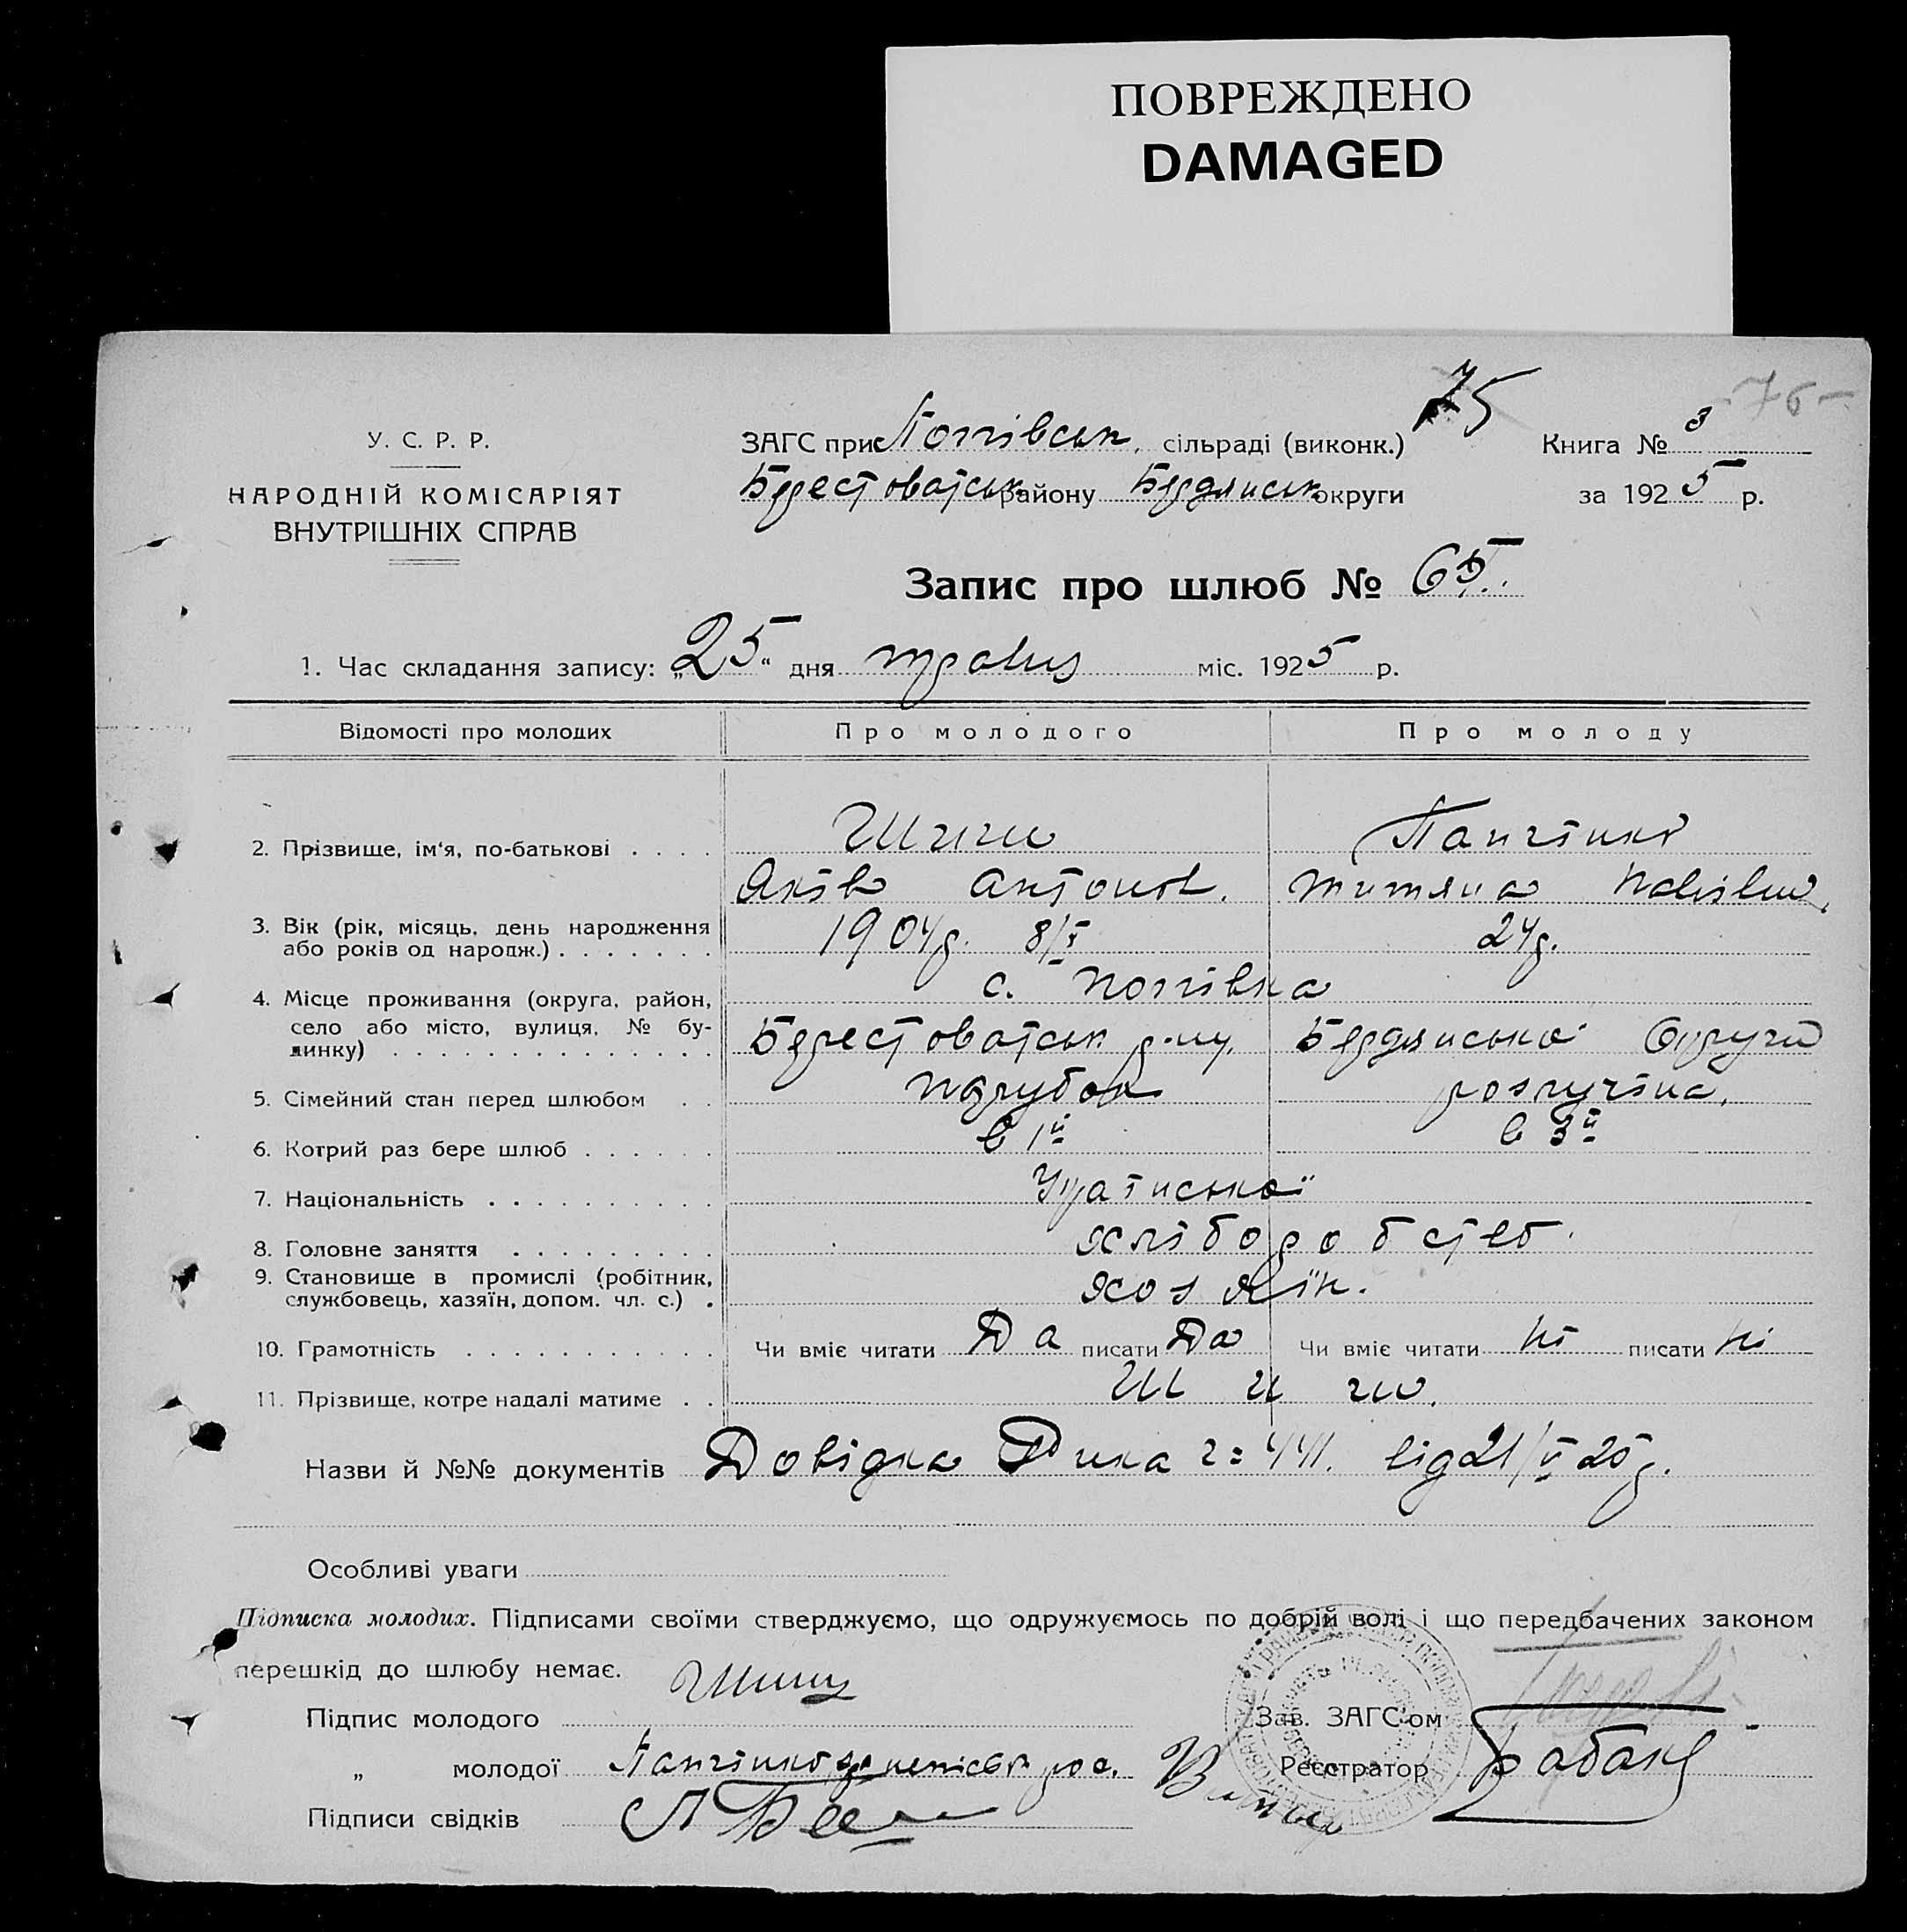 ПОВРЕЖДЕНО
DAMAGED
75
76
У. С. Р. Р.
НАРОДНІЙ КОМІСАРІЯТ
ВНУТРІШНІХ СПРАВ
ЗАГС при Попівськ. сільраді (виконк.)
Книга № 3
Берестоватськ району Бердянськ округи
за 1925 р.
Запис про шлюб № 65.
1. Час складання запису: „25“ дня травня міс. 1925 р.
Відомості про молодих
Про молодого
Про молоду
2. Прізвище, ім‘я, по-батькові . . . .
Панчінко
Яків Антонов.
Титяна
3. Вік (рік, місяць, день народження
або років од народж.) . . . . . . .
1904р. 8/X
24р.
4. Місце проживання (округа, район,
село або місто, вулиця, № бу-
динку) . . . . . . . . . . . . . .
с. Попівка
Берестоватськ р-ну, Бердянської Округи
5. Сімейний стан перед шлюбом . .
парубок
розлучіна.
6. Котрий раз бере шлюб . . . . . .
в 1й
в 3й
7. Національність . . . . . . . . . .
Украінської
8. Головне заняття . . . . . . . . .
хліборобств.
9. Становище в промислі (робітник,
службовець, хазяїн, допом. чл. с.) .
хозяїн.
10. Грамотність . . . . . . . . . . .
Чи вміє читати Да писати Да
Чи вміє читати Ні писати Ні
11. Прізвище, котре надалі матиме . .
Назви й №№ документів Довідка ч= 441. від 21/V 25р.
Особливі уваги
Підписка молодих. Підписами своїми стверджуємо, що одружуємось по добрій волі і що передбачених законом
перешкід до шлюбу немає.
Підпис молодого
Зав. ЗАГС‘ом
„ молодої Панчінко
Реєстратор
Підписи свідків